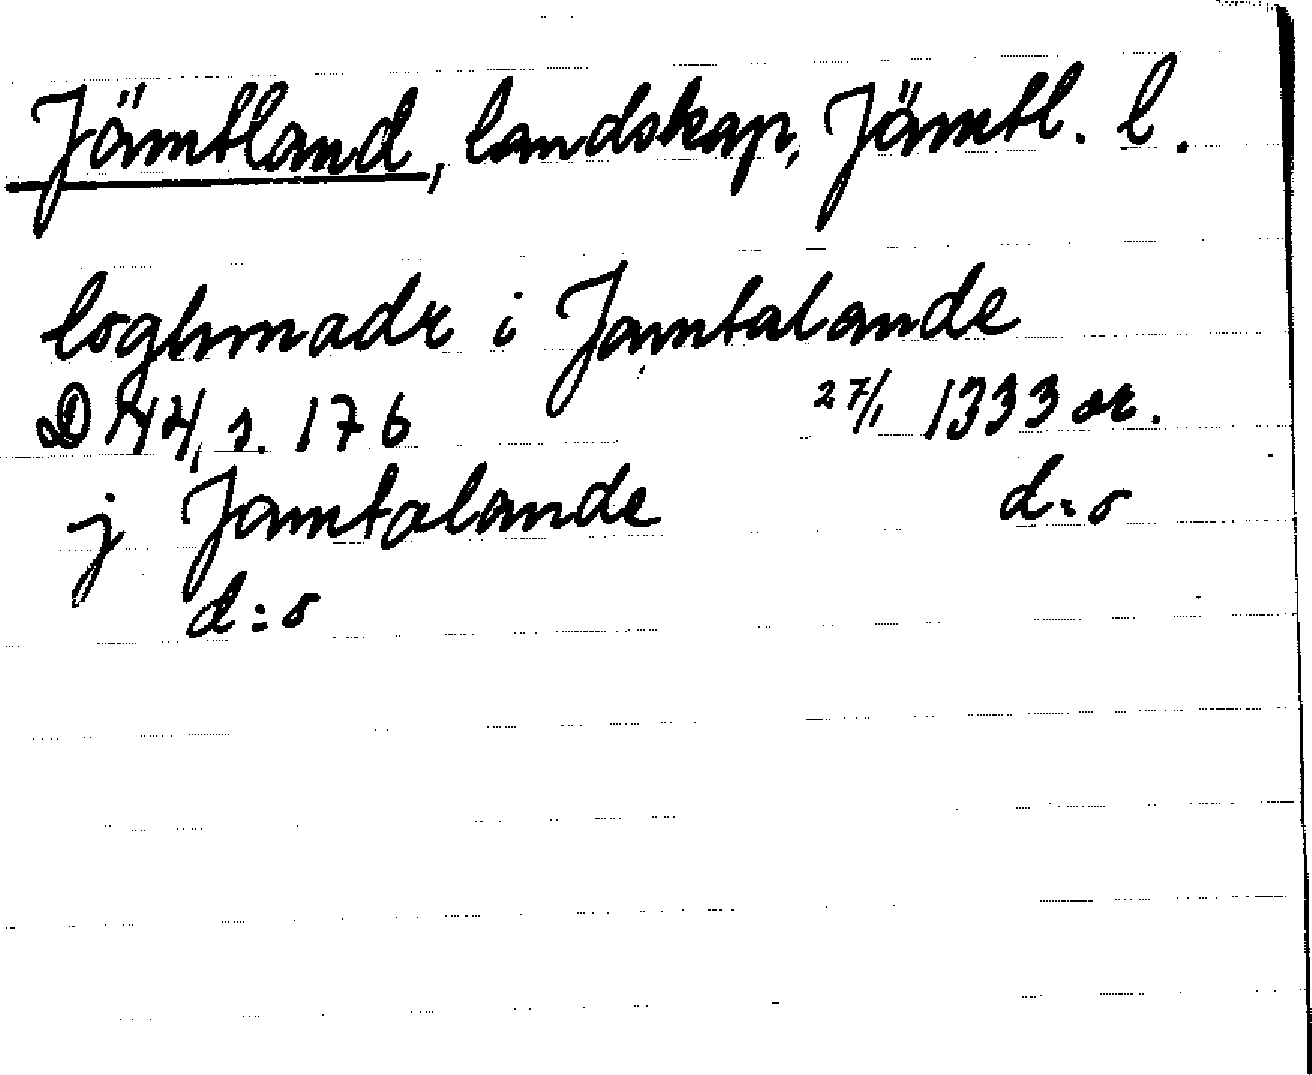 Jämtland, landskap, Jämtl. l.
loghmadr i Jamtalande
D 14, s. 176 27/1 1333 or.
j Jamtalande d:o
d:o